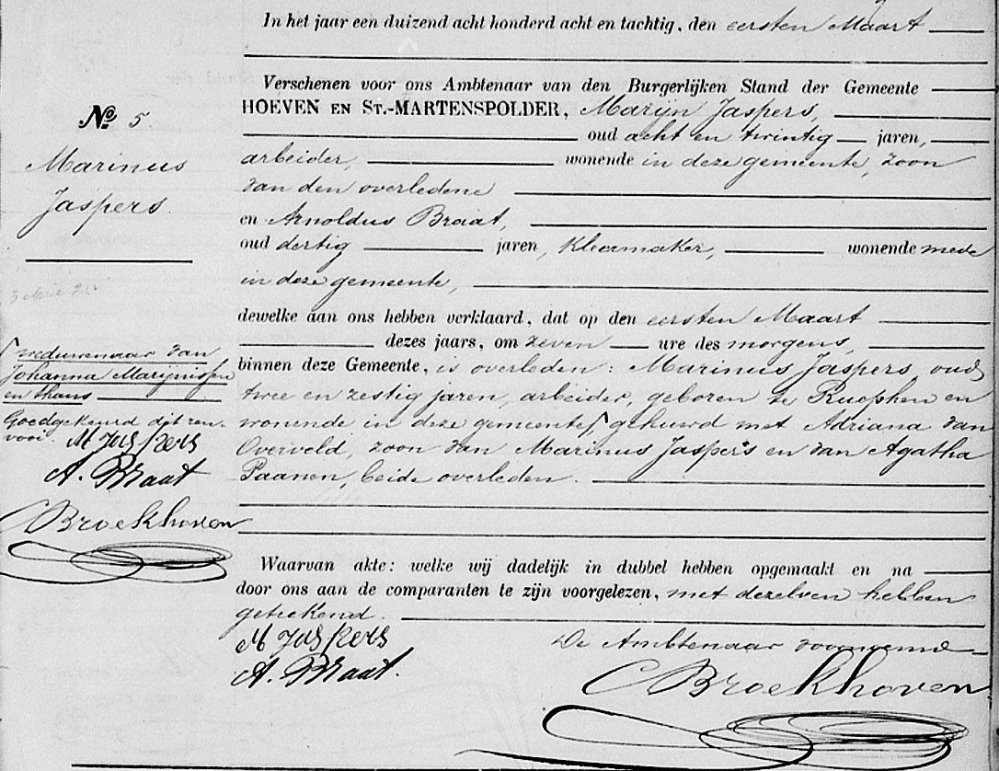 In het jaar een duizend acht honderd acht en tachtig, den eersten Maart
Verschenen voor ons Ambtenaar van den Burgerlijken Stand der Gemeente
HOEVEN EN ST.-MARTENSPOLDER, Marijn Jaspers,
oud acht en twintig jaren,
arbeider, wonende in deze gemeente, zoon
van den overledene
en Arnoldus Braat,
oud dertig jaren, kleermaker, wonende mede
in deze gemeente,
dewelke aan ons hebben verklaard, dat op den eersten Maart
dezes jaars, om zeven ure des morgens,
binnen deze Gemeente, is overleden: Marinus Jaspers, oud
twee en zestig jaren, arbeider, geboren te Rucphen en
wonende in deze gemeente, gehuwd met Adriana van
Overveld, zoon van Marinus Jaspers en van Agatha
Paanen, beide overleden.
Waarvan akte: welke wij dadelijk in dubbel hebben opgemaakt en na
door ons aan de comparanten te zijn voorgelezen, met dezelven hebben
geteekend.
M Jaspers
A. Braat.
De Ambtenaar voornoemd
C Broekhoven
No 5.
Marinus
Jaspers.
weduwenaar van
Johanna Marijnissen
en thans
Goedgekeurd dit ren-
vooi.
M Jaspers
A. Braat
C Broekhoven